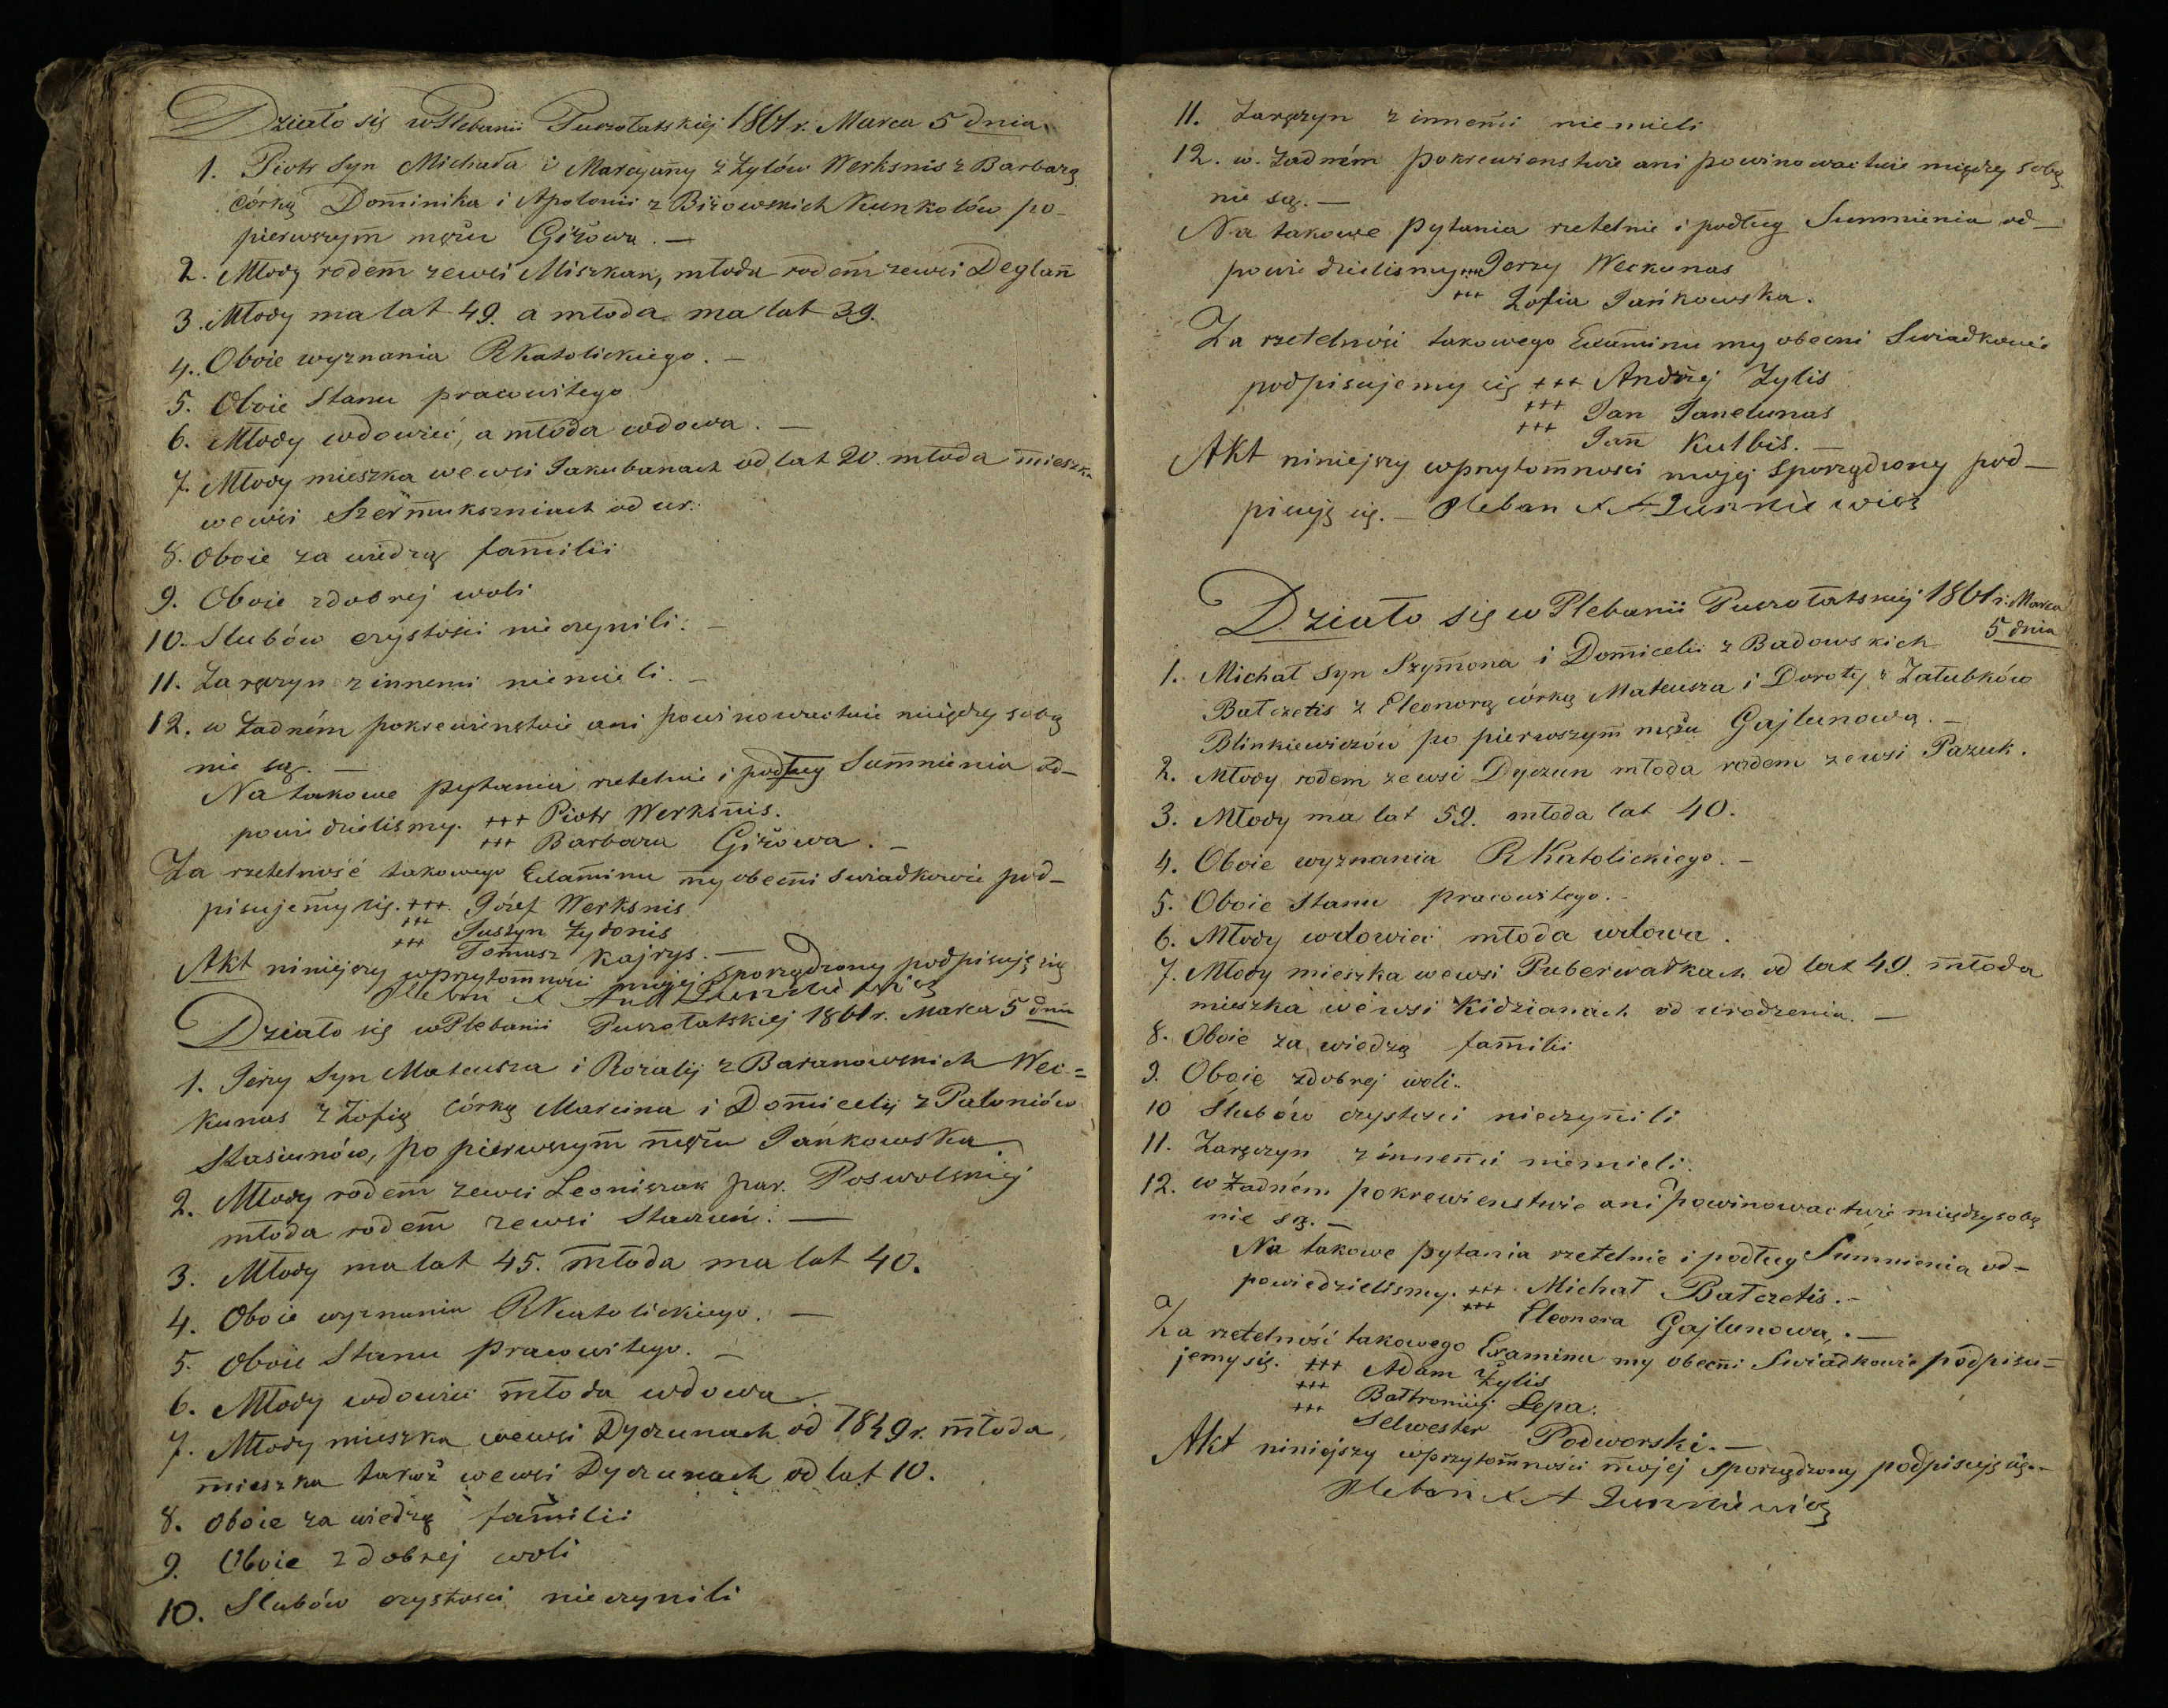 Działo się w Plebanii Puszołatskiej 1861 r. Marca 5 dnia
1. Piotr Syn Michała i Marcyanny z Zylów Werksnis z Barbarą
córką Dominika i Apolonii z Biżowskich Kunkolów po-
pierwszym mężu Giżowa. —
2. Młody rodem zewsi Miszkan, młoda rodem zewsi Deglan
3. Młody ma lat 49. a młoda ma lat 39.
4. Oboie wyznania RKatolickiego. —
5. Oboie Stanu pracowitego
6. Młody wdowiec, a młoda wdowa. —
7. Młody mieszka wewsi Jakubanach od lat 20. młoda mieszka
wewsi Szermukszniach od ur.
8. Oboie za wiedzą familii
9. Oboie zdobrej woli
10. Slubów czystości nieczynili. —
11. Zaręczyn zinnemi niemieli. —
12. w żadném pokrewieństwie ani powinowactwie między sobą
nie są. —
Na takowe pytania rzetelnie i podług Summienia od-
powiedzielismy. +++ Piotr Werksnis.
+++ Barbara Giżowa. —
Za rzetelność takowego Examinu my obecni swiadkowie pod-
pisujemy się. +++ Józef Werksnis
+++ Justyn Żydonis
+++ Tomasz Kajrys. —
Akt niniejszy wprzytomności mojej sporządzony podpisuję się
Pleban X
Działo się wPlebanii Puszołatskiej 1861 r. Marca 5 dnia
1. Jerzy Syn Mateusza i Rozalij z Baranowskich Wec=
kunas z Zofią córką Marcina i Domicelij z Paloniów
Stasiunów, po pierwszym mężu Jańkowska
2. Młody rodem zewsi Leoniszak par. Poswolskiej
młoda rodem zewsi Staczuń. —
3. Młody ma lat 45. młoda ma lat 40.
4. Oboie wyznania RKatolickiego. —
5. Oboie Stanu pracowitego. —
6. Młody wdowiec młoda wdowa.
7. Młody mieszka wewsi Dyczunach od 1849 r. młoda
mieszka także wewsi Dyczunach od lat 10.
8. Oboie za wiedzą familii
9. Oboie zdobrej woli
10. Slubów czystosci nieczynili
11. Zaręczyn zinnemi niemieli
12. w. żadném pokrewienstwie ani powinowactwie między sobą
nie są. —
Na takowe pytania rzetelnie i podług Summienia od-
powiedzielismy +++ Jerzy Weckunas
+++ Zofia Jańkowska.
Za rzetelność takowego Examinu my obecni Swiadkowie
podpisujemy się +++ Andrzej Zylis
+++ Jan Janelunas
+++ Jan Kulbis. —
Akt niniejszy wprzytomnosci mojej sporządzony pod-
pisuję się. — Pleban X A
Działo się w Plebanii Puszołatskiej 1861 r. Marca
5 dnia
1. Michał Syn Szymona i Domicelii z Badowskich
Bałczetis z Eleonorą córką Mateusza i Doroty z Załubków
Blinkiewiczów po pierwszym mężu Gajlunową. —
2. Młody rodem zewsi Dyczun młoda rodem zewsi Pazuk.
3. Młody ma lat 59. młoda lat 40.
4. Oboie wyznania RKatolickiego. —
5. Oboie Stanu pracowitego. —
6. Młody wdowiec młoda wdowa.
7. Młody mieszka wewsi Puberwałkach od lat 49. młoda
mieszka wewsi Kidzianach od urodzenia. —
8. Oboie za wiedzą familii
9. Oboie zdobrej woli.
10 Slubów czystosci nieczynili
11. Zaręczyn zinnemi niemieli.
12. w żadném pokrewienstwie ani powinowactwie między sobą
nie są. —
Na takowe pytania rzetelnie i podług Summienia od-
powiedzielismy. +++ Michał Bałczetis. —
+++ Eleonora Gajlunowa. —
Za rzetelność takowego Examinu my obecni Swiadkowie podpisu=
jemy się. +++ Adam Żylis
+++ Bałtromiej Lepa.
+++ Selwester Podworski. —
Akt niniejszy wprzytomności mojej sporządzony podpisuję się. —
Pleban X A